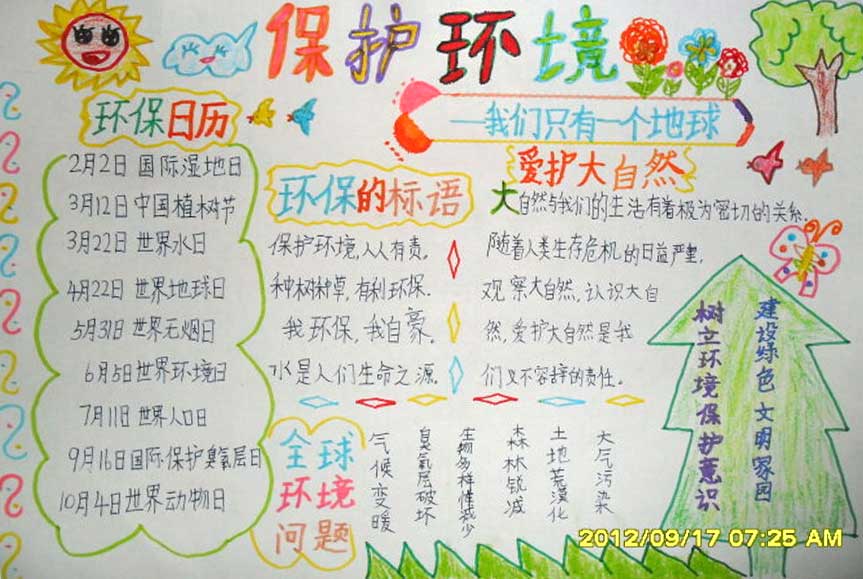 保护环境
—我们只有一个地球
环保日历
2月2日 国际湿地日
3月12日 中国植树节
3月22日 世界水日
4月22日 世界地球日
5月31日 世界无烟日
6月5日 世界环境日
7月11日 世界人口日
9月16日 国际保护臭氧层日
10月4日 世界动物日
环保的标语
保护环境,人人有责。
种树种草,有利环保.
我环保,我自豪.
水是人们生命之源.
爱护大自然
大自然与我们的生活有着极为密切的关系.
随着人类生存危机的日益严重,
观察大自然,认识大自
然,爱护大自然是我
们义不容辞的责任。
全球
环境
问题
气候变暖
臭氧层破坏
生物多样性减少
森林锐减
土地荒漠化
大气污染
树立环境保护意识
建设绿色文明家园
2012/09/17 07:25 AM